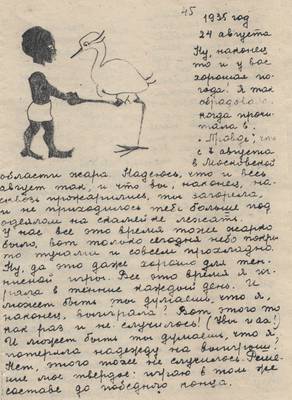 45
1935 год
24 августа
Ну, наконец
то и у вас
хорошая по-
года! Я так
обрадовалась,
когда прочи-
тала в
"Правде", что
с 8 августа
в Московской
области жара. Надеюсь, что и весь
август так, и что вы, наконец, на-
сквозь прожарились, ты загорела,
и не приходится тебе больше под
одеялом на скамейке лежать.
У нас все это время тоже жарко
было, вот только сегодня небо покры-
то тучами и совсем прохладно.
Ну, да это даже хорошо для тен-
нисной игры. Все это время я иг-
рала в теннис каждый день. И
может быть ты думаешь, что я,
наконец, выиграла? Вот этого то
как раз и не случилось! (Увы и ах!)
И может быть ты думаешь, что я
потеряла надежду на выигрыш?
Нет, этого тоже не случилось. Реше-
ние мое твердое: играю в том же
составе до победного конца.